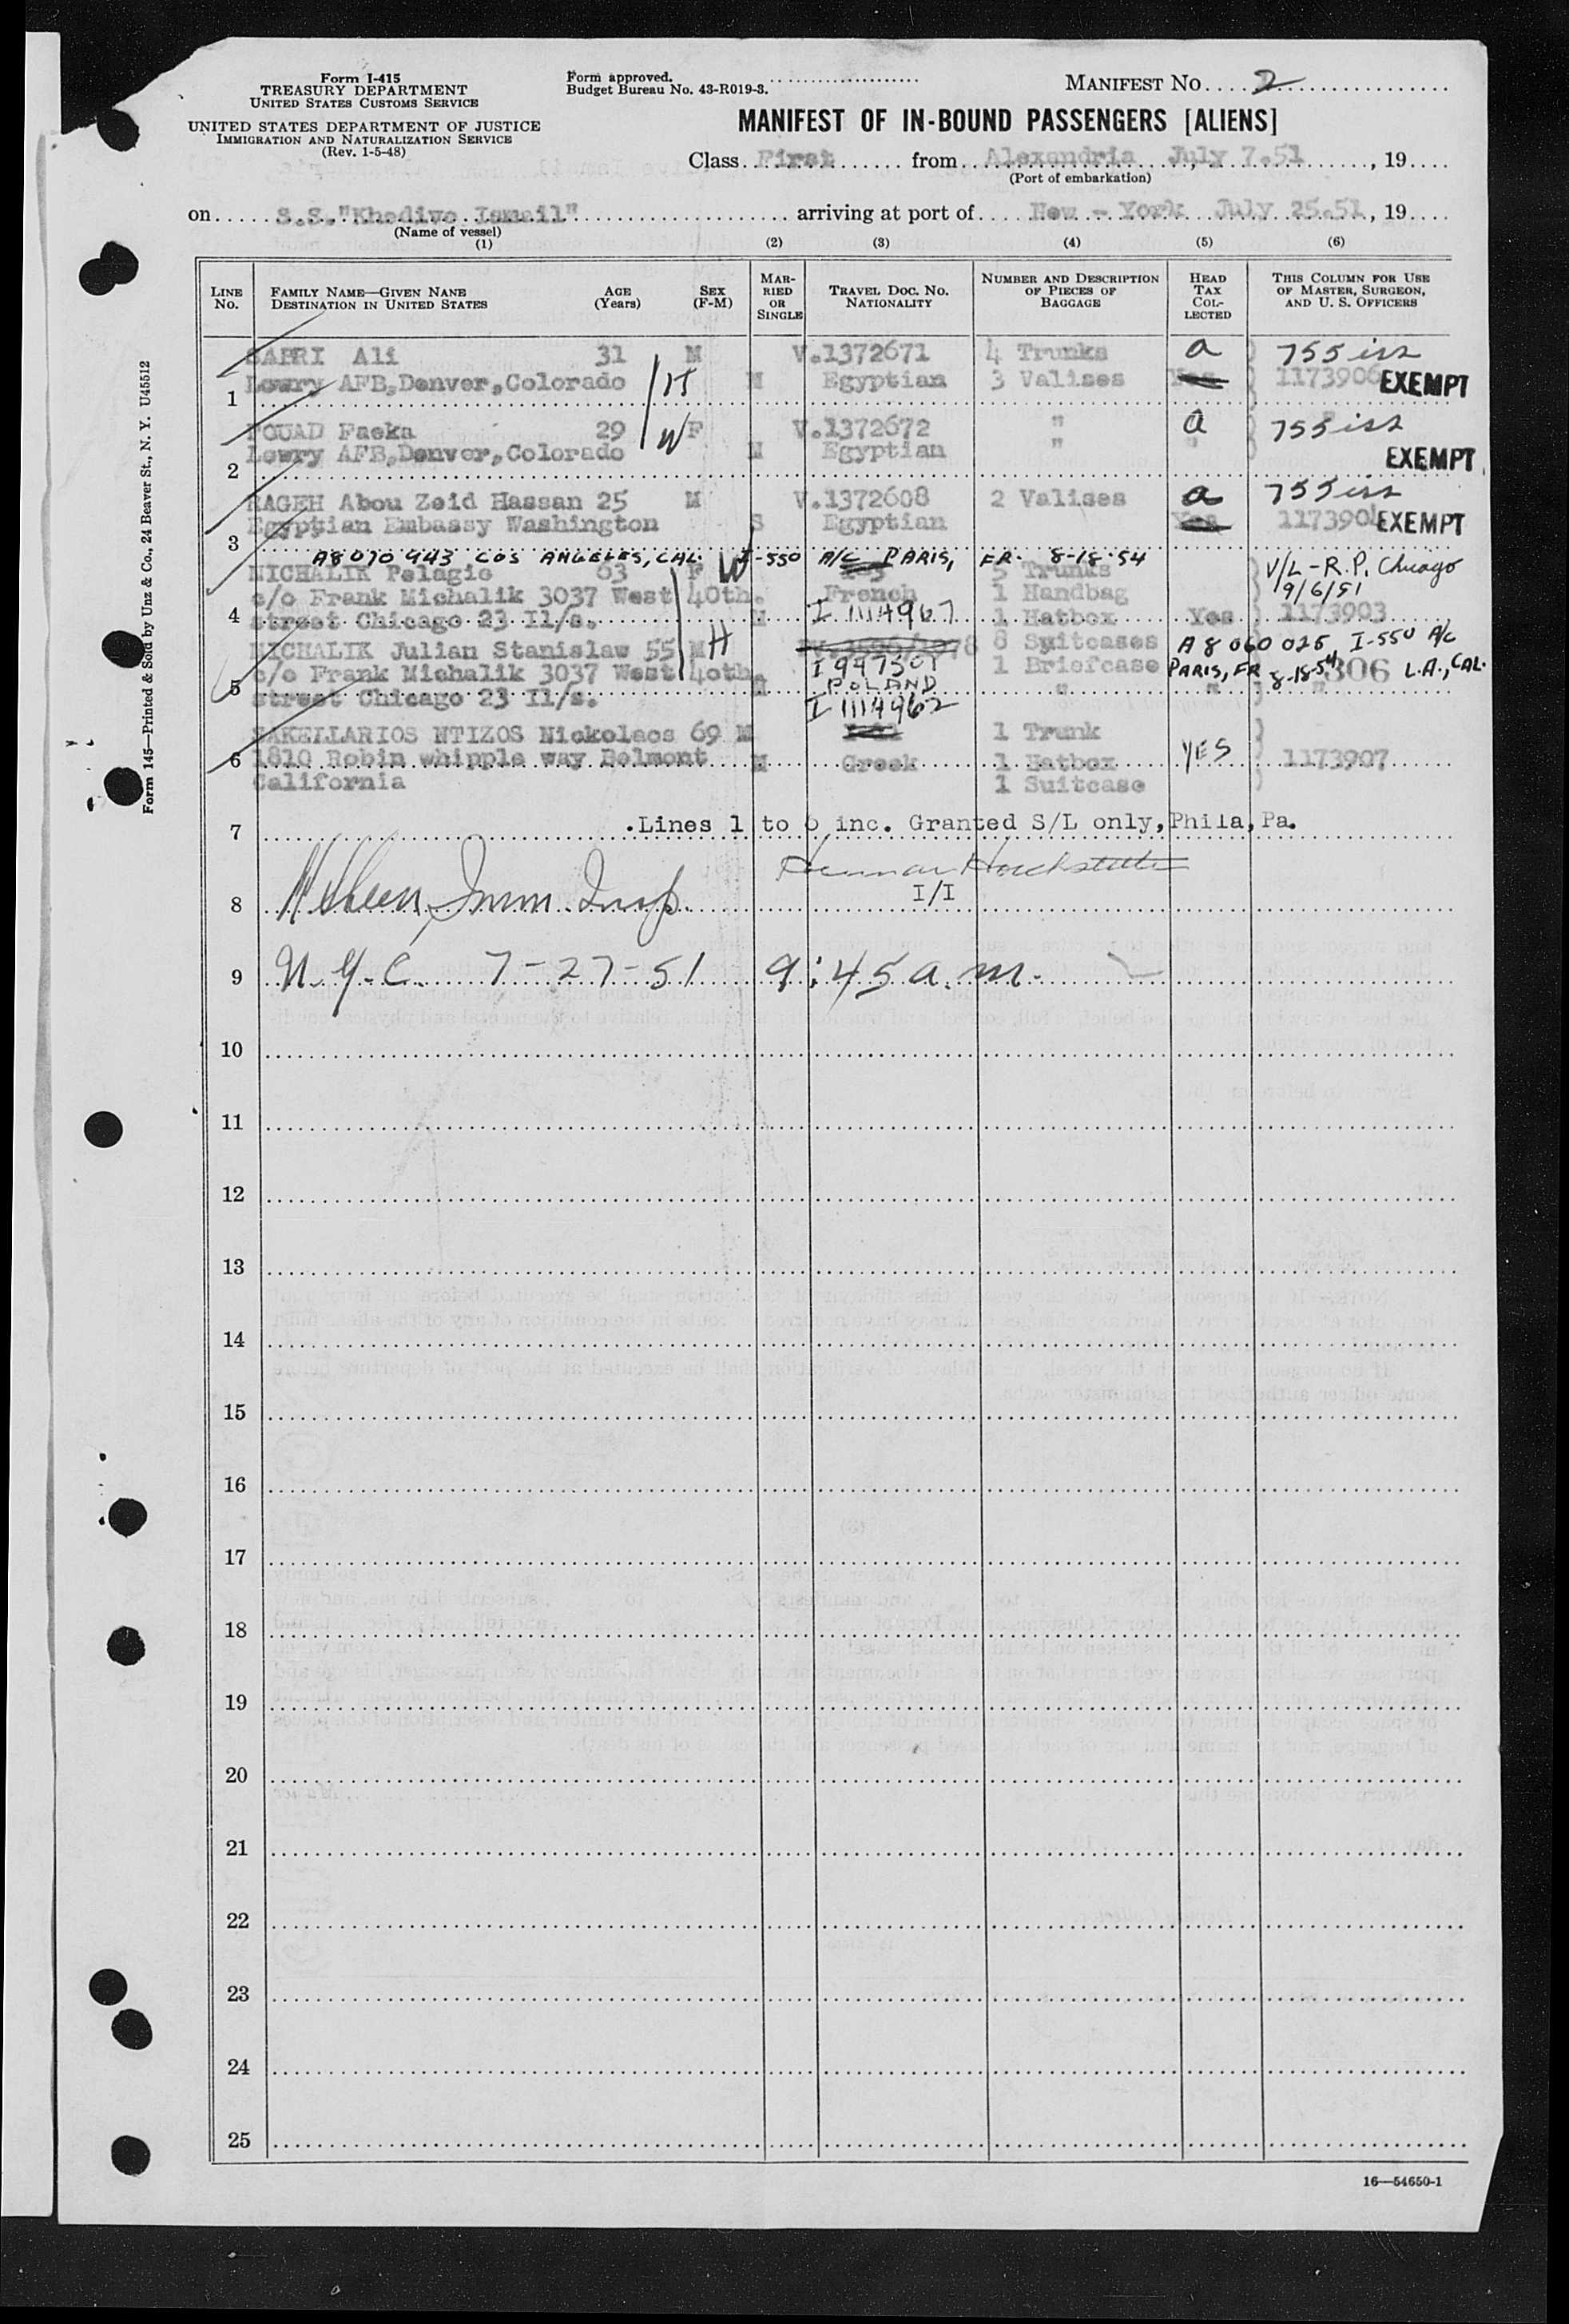 Form I-415
TREASURY DEPARTMENT
UNITED STATES CUSTOMS SERVICE
UNITED STATES DEPARTMENT OF JUSTICE
IMMIGRATION AND NATURALIZATION SERVICE
(Rev. 1-5-48)
Form approved.
Budget Bureau No. 43-R019-3.
MANIFEST NO. 2
MANIFEST OF IN-BOUND PASSENGERS [ALIENS]
Class First from Alexandria July 7.51, 19
(Port of embarkation)
on S.S."Khedive Ismail" arriving at port of New - York July 25.51, 19
(Name of vessel)
(1) (2) (3) (4) (5) (6)
LINE No. FAMILY NAME—GIVEN NANE DESTINATION IN UNITED STATES AGE (Years) SEX (F-M) MARRIED OR SINGLE TRAVEL DOC. NO. NATIONALITY NUMBER AND DESCRIPTION OF PIECES OF BAGGAGE HEAD TAX COLLECTED THIS COLUMN FOR USE OF MASTER, SURGEON, AND U. S. OFFICERS
SABRI Ali 31 M V.1372671 4 Trunks a 755 iss
1 Lowry AFB,Denver,Colorado H M Egyptian 3 Valises Yes 1173906 EXEMPT
FOUAD Faeka 29 F V.1372672 " a 755 iss
2 Lowry AFB,Denver,Colorado W M Egyptian " " EXEMPT
RAGEH Abou Zeid Hassan 25 M V.1372608 2 Valises a 755 iss
3 Egyptian Embassy Washington S Egyptian Yes 1173904 EXEMPT
A8070943 LOS ANGELES, CAL. I-550 A/C PARIS, FR. 8-18-54
MICHALIK Pelagie 63 F W 5 Trunks V/L - R.P. Chicago
c/o Frank Michalik 3037 West 40th. French 1 Handbag 9/6/51
4 street Chicago 23 Il/s. M I 1114967 1 Hatbox Yes 1173903
MICHALIK Julian Stanislaw 55 M H 8 Suitcases A 8 060 025 I-550 A/C
c/o Frank Michalik 3037 West 40th I 947501 1 Briefcase PARIS, FR 8-18-54 306 L.A., CAL.
5 street Chicago 23 Il/s. M POLAND " " "
I 1114962
SAKELLARIOS NTIZOS Nickolaos 69 M 1 Trunk
6 1810 Robin whipple way Belmont M Greek 1 Hatbox YES 1173907
California 1 Suitcase
7 .Lines 1 to 6 inc. Granted S/L only,Phila,Pa.
8 Imm. Insp. I/I
9 N.Y.C. 7-27-51 9:45 a.m.
10
11
12
13
14
15
16
17
18
19
20
21
22
23
24
25
16—54650-1
Form 145—Printed & Sold by Unz & Co., 24 Beaver St., N. Y. U45512